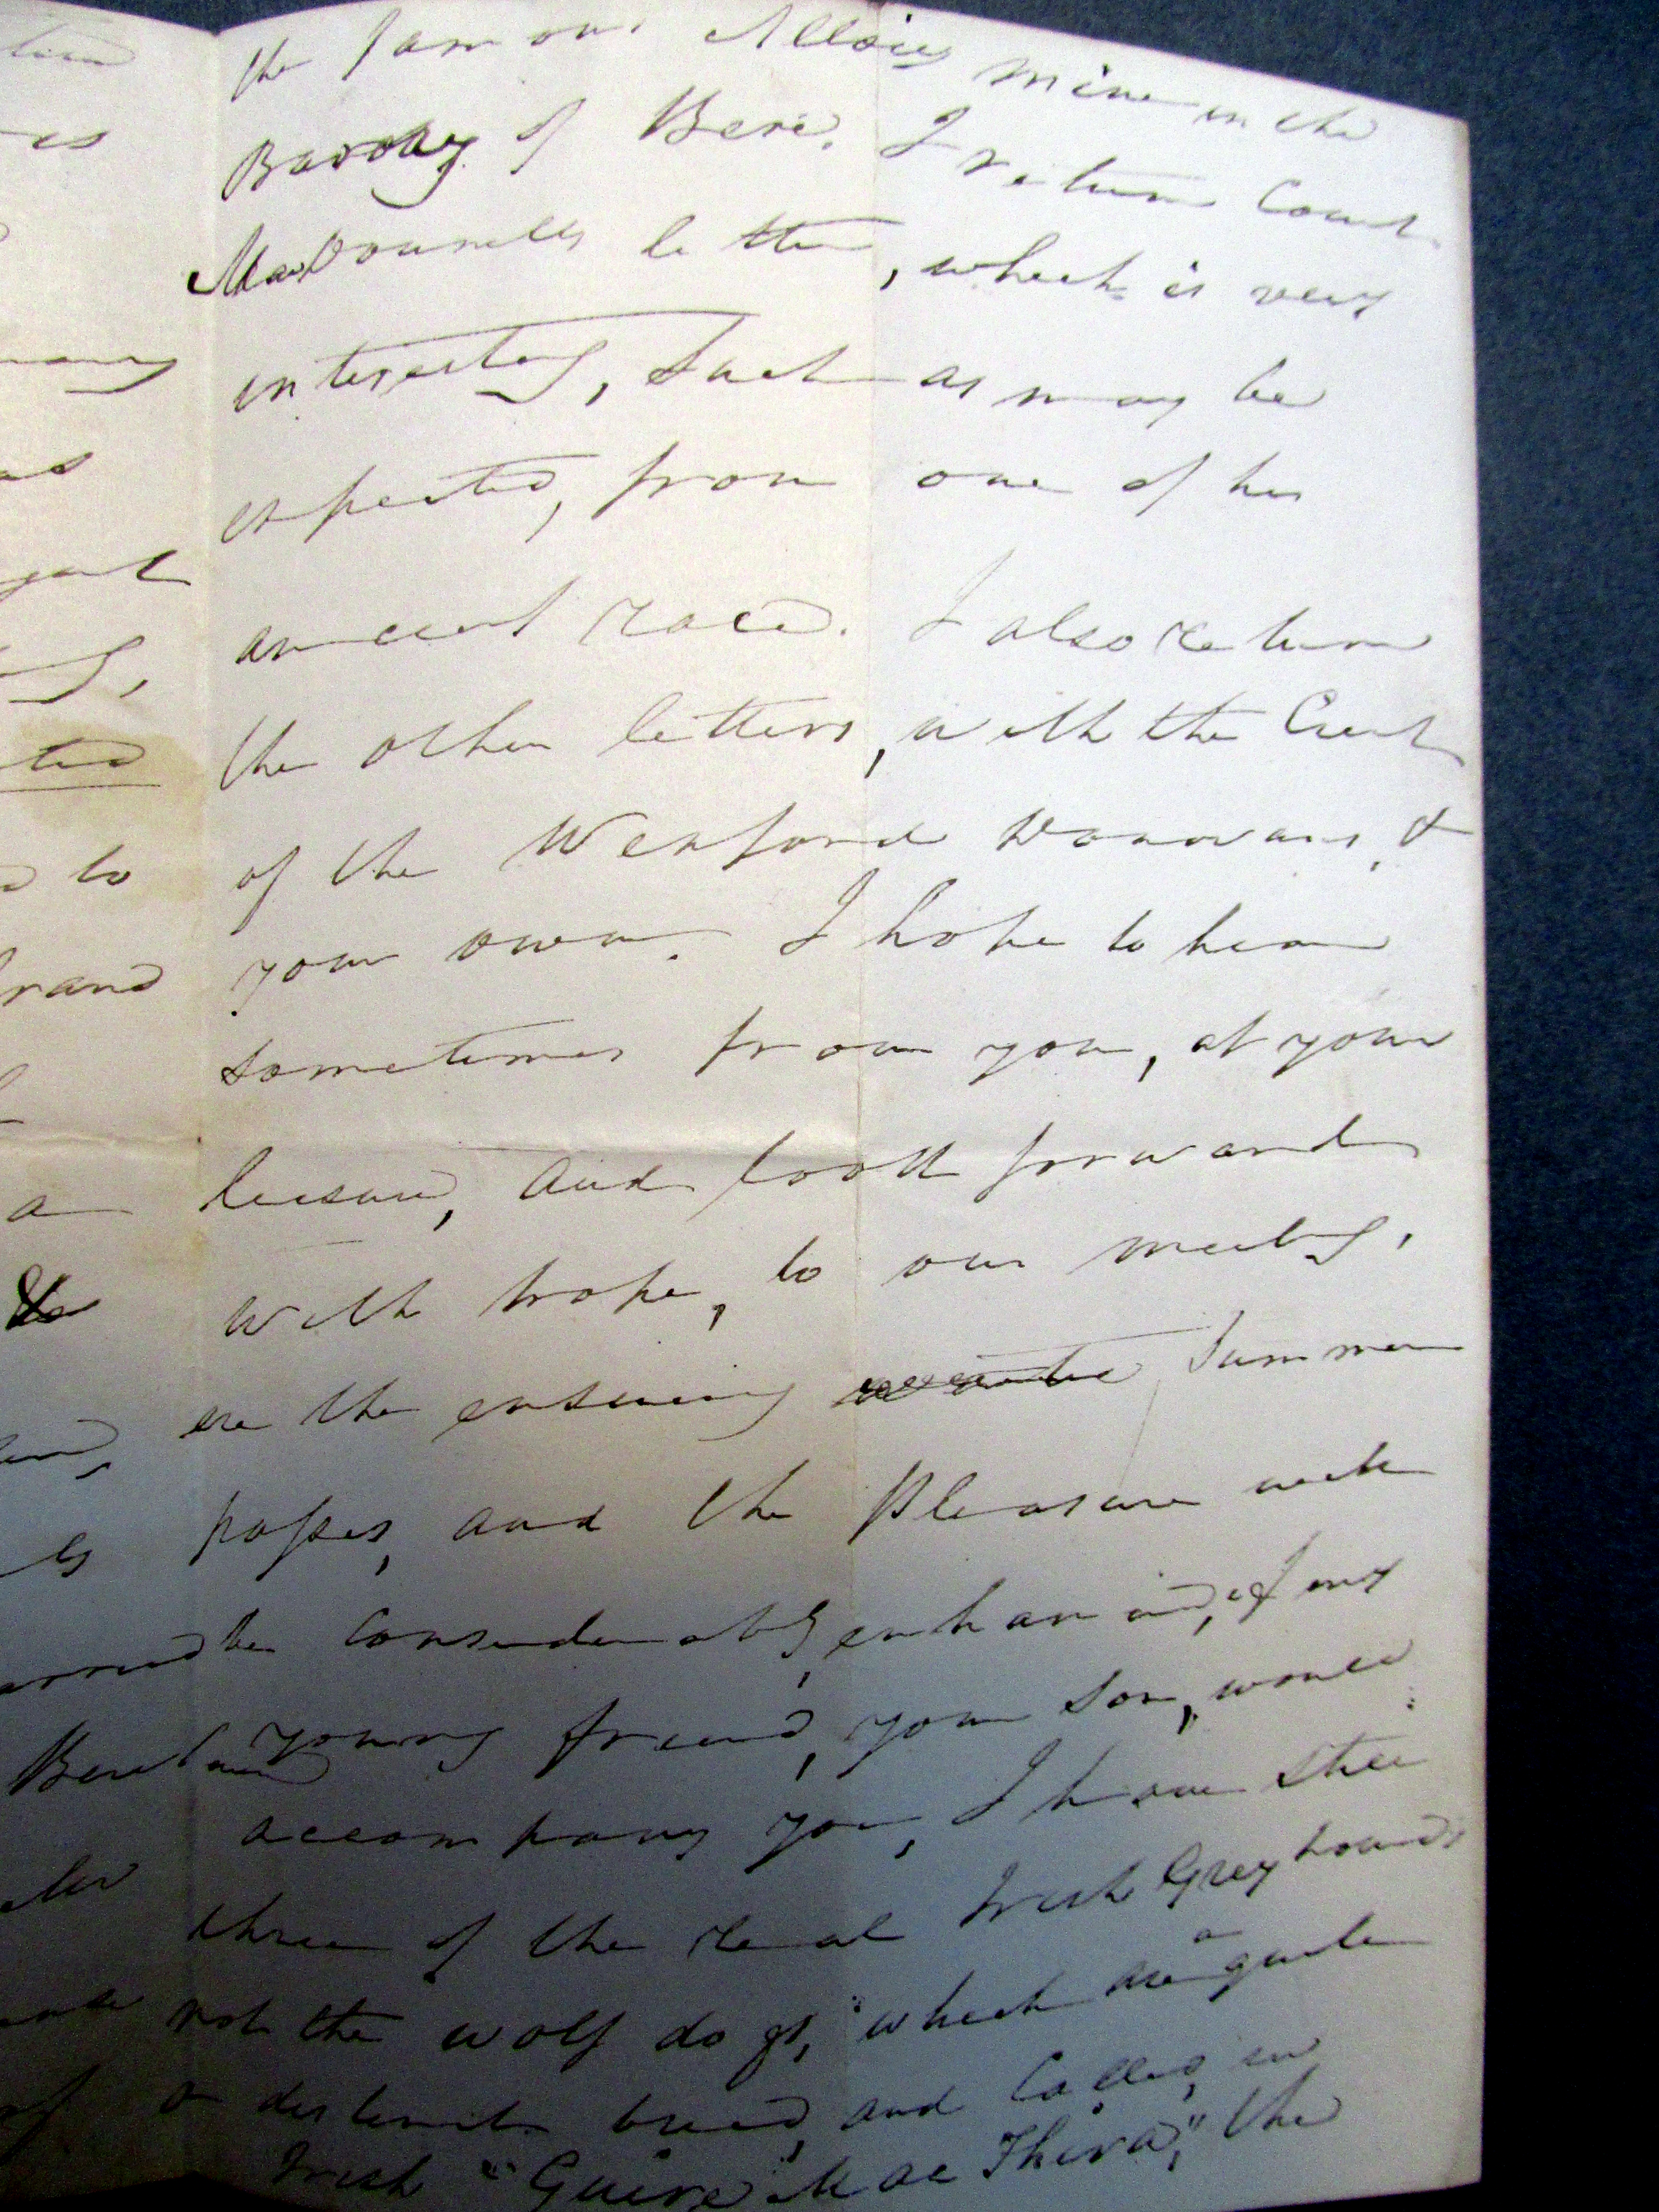 the famous Allais mine in the
Barony of Bere. I return Count
MacDonnells letter, which is very
interesting, such as may be
expected, from one of his
ancient race. I also return
the other letters, with the Crest
of the Wexford Donovans, &
your own. I hope to hear
sometimes from you, at your
leisure, and look forward
with hope, to our meeting,
ere the ensuing Summer
passes, and the pleasure will
be considerably, enhanced, if my
young friend, your son, would
accompany you, I have still
three of the real Irish Greyhounds
not the wolf dogs, which are a quite
a distinct breed, and called, in
Irish "Guire Mac Thira", the
many
to
a
Bereland
of